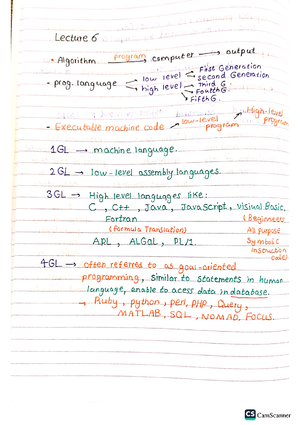 Lecture 6
• Algorithm program → computer → output
- prog. language → low level → First Generation
→ second Generation
→ high level → Third G.
→ Fourth G.
→ Fifth G.
- Executable machine code → low-level program → High-level program
1GL → machine language.
2GL → low-level assembly languages.
3GL → High level languages like:
C, C++, Java, JavaScript, Visual Basic,
Fortran (Beginners
(formula Translation) All purpose
APL, ALGOL, PL/1. Symbolic
instruction
code)
4GL → often referred to as goal-oriented
programming, similar to statements in human
language, enable to acess data in database.
→ Ruby, python, perl, PHP, Query,
MATLAB, SQL, NOMAD, FOCUS.
CS CamScanner